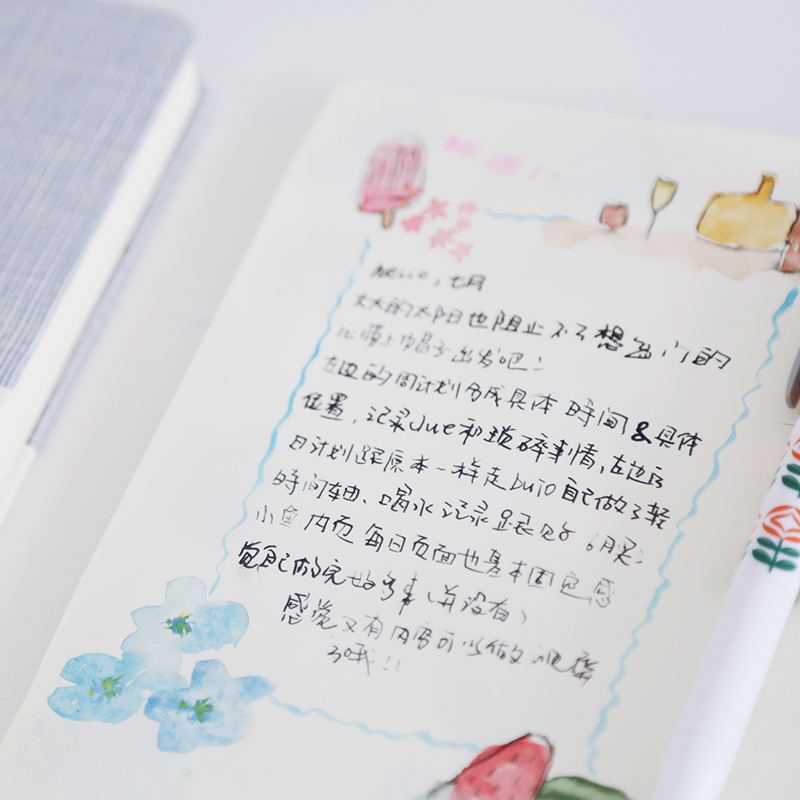 Hello, 七月
大大的太阳也阻止不了想出门的
心 戴上帽子出发吧!
左边的周计划分成具体 時间 & 具体
位置, 记录due和琐碎事情, 左边
日计划跟原本一样走bujo 自己做了轻
時间轴、喝水记录 跟 6月
小鱼 内页 每日页面也基本固定 感
觉自己做完 好多事(并没有)
感觉又有内容可以做视频
了哦!!